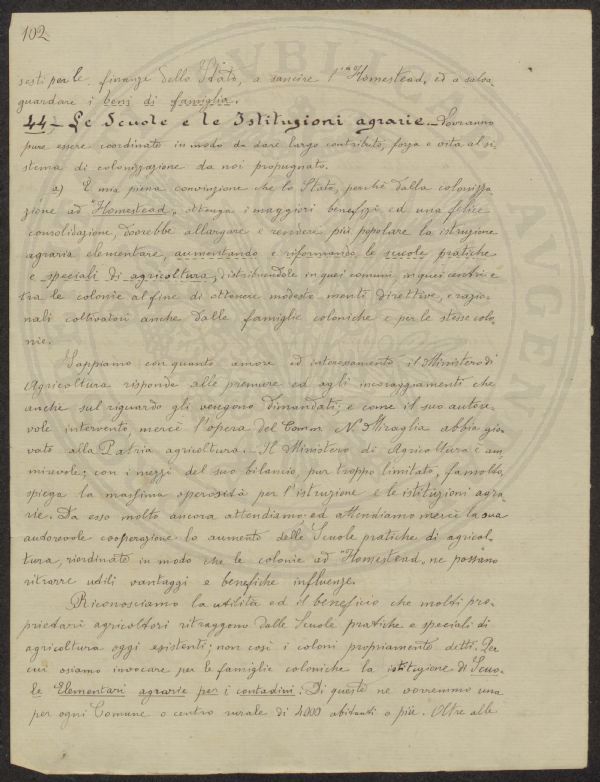 102
sesti per le finanze dello Stato, a sancire l'"Homestead„ ed a salva-
guardare i beni di famiglia.
44.- Le Scuole e le Istituzioni agrarie.- Dovranno
pure essere coordinate in modo da dare largo contributo, forza e vita al si-
stema di colonizzazione da noi propugnato.
a) È mia piena convinzione che lo Stato, perchè dalla colonizza-
zione ad "Homestead„ ottenga i maggiori benefizi ed una felice
consolidazione, dovrebbe allargare e rendere più popolare la istruzione
agraria elementare, aumentando e riformando le scuole pratiche
e speciali di agricoltura, distribuendole in quei comuni, in quei centri e
tra le colonie al fine di ottenere modeste menti direttive, e razio-
nali coltivatori anche dalle famiglie coloniche e per le stesse colo-
nie.
Sappiamo con quanto amore ed interessamento il Ministero di
Agricoltura risponde alle premure ed agli incoraggiamenti che
anche sul riguardo gli vengono dimandati; e come il suo autore-
vole intervento, mercè l'opera del Comm. N. Miraglia abbia gio-
vato alla Patria agricoltura. Il Ministero di Agricoltura è am-
mirevole; con i mezzi del suo bilancio, pur troppo limitato, fa molto,
spiega la massima operosità per l'istruzione e le istituzioni agra-
rie. Da esso molto ancora attendiamo; ed attendiamo mercè la sua
autorevole cooperazione lo aumento delle Scuole pratiche di agricol-
tura, riordinate in modo che le colonie ad "Homestead„ ne possano
ritrarre utili vantaggi e benefiche influenze.
Riconosciamo la utilità ed il beneficio che molti pro-
prietari agricoltori ritraggono dalle Scuole pratiche e speciali di
agricoltura oggi esistenti; non così i coloni propriamente detti. Per
cui osiamo invocare per le famiglie coloniche la istituzione di Scuo-
le Elementari agrarie per i contadini. Di queste ne vorremmo una
per ogni Comune o centro rurale di 4000 abitanti o più. Oltre alle